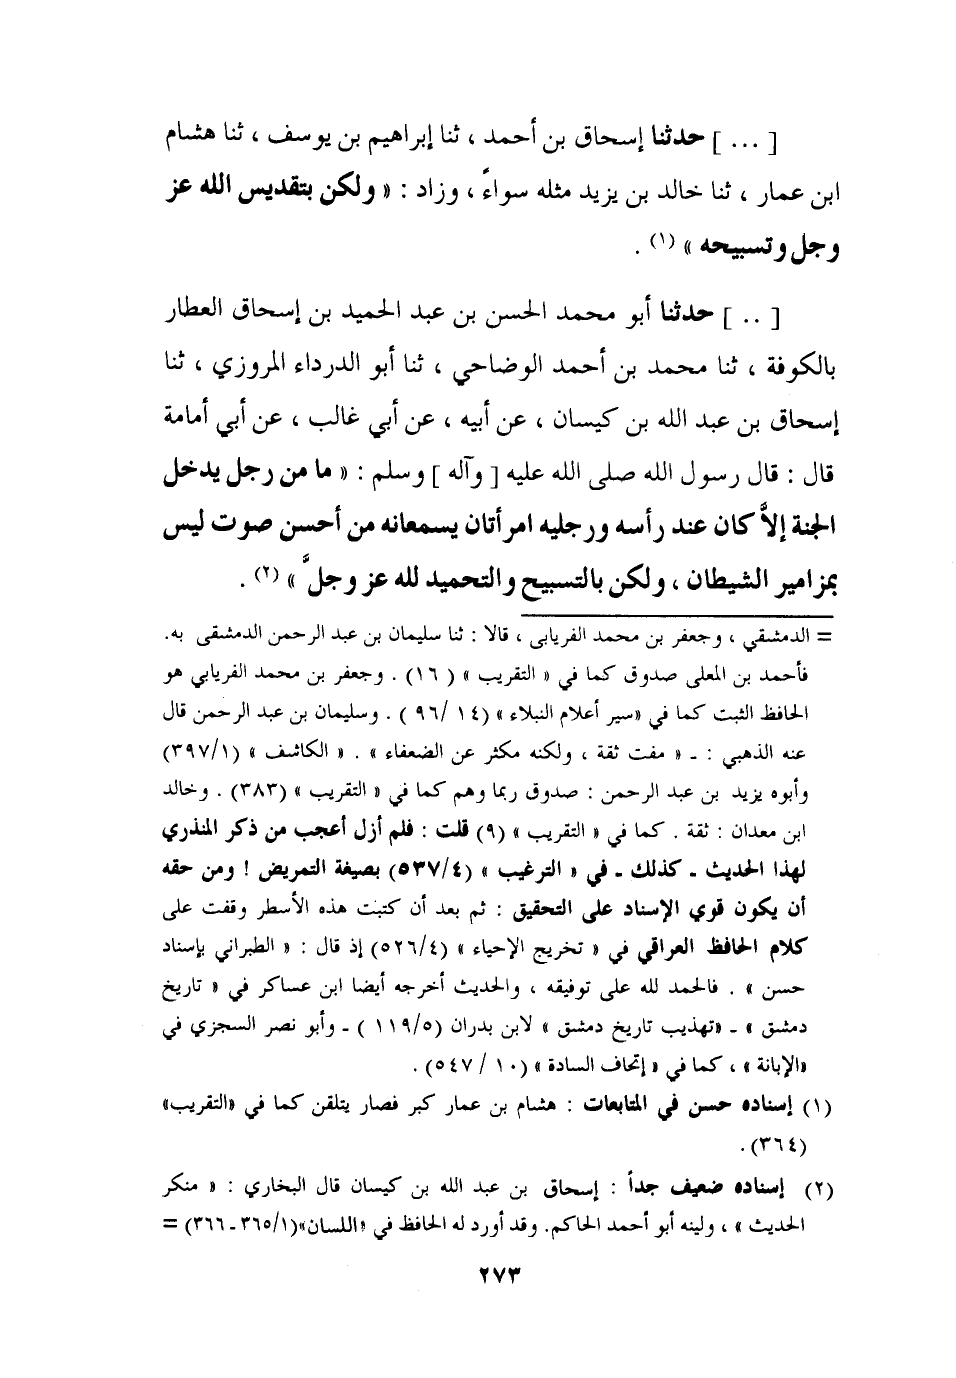 [ ... ] حدثنا إسحاق بن أحمد ، ثنا إبراهيم بن يوسف ، ثنا هشام
ابن عمار ، ثنا خالد بن يزيد مثله سواءً ، وزاد : « ولكن بتقديس الله عز
وجل وتسبيحه » (١) .
[ .. ] حدثنا أبو محمد الحسن بن عبد الحميد بن إسحاق العطار
بالكوفة ، ثنا محمد بن أحمد الوضاحي ، ثنا أبو الدرداء المروزي ، ثنا
إسحاق بن عبد الله بن كيسان ، عن أبيه ، عن أبي غالب ، عن أبي أمامة
قال : قال رسول الله صلى الله عليه [ وآله ] وسلم : « ما من رجل يدخل
الجنة إلاَّ كان عند رأسه ورجليه امرأتان يسمعانه من أحسن صوت ليس
بمزامير الشيطان ، ولكن بالتسبيح والتحميد لله عز وجلَّ » (٢) .
= الدمشقي ، وجعفر بن محمد الفريابى ، قالا : ثنا سليمان بن عبد الرحمن الدمشقى به.
فأحمد بن المعلى صدوق كما في « التقريب » ( ١٦) . وجعفر بن محمد الفريابي هو
الحافظ الثبت كما في «سير أعلام النبلاء » (١٤ /٩٦ ) . وسليمان بن عبد الرحمن قال
عنه الذهبي : ـ « مفت ثقة ، ولكنه مكثر عن الضعفاء » . « الكاشف » (٣٩٧/١)
وأبوه يزيد بن عبد الرحمن : صدوق ربما وهم كما في « التقريب » (٣٨٣) . وخالد
ابن معدان : ثقة . كما في « التقريب » (٩) قلت : فلم أزل أعجب من ذكر المنذري
لهذا الحديث ـ كذلك ـ في « الترغيب » (٥٣٧/٤) بصيغة التمريض ! ومن حقه
أن يكون قوي الإسناد على التحقيق : ثم بعد أن كتبت هذه الأسطر وقفت على
كلام الحافظ العراقي في « تخريج الإحياء » (٥٢٦/٤) إذ قال : « الطبراني بإسناد
حسن » . فالحمد لله على توفيقه ، والحديث أخرجه أيضا ابن عساكر في « تاريخ
دمشق » ـ «تهذيب تاريخ دمشق » لابن بدران (١١٩/٥ ) ـ وأبو نصر السجزي في
«الإبانة » ، كما في « إتحاف السادة » (١٠ / ٥٤٧) .
(١) إسناده حسن في المتابعات : هشام بن عمار كبر فصار يتلقن كما في «التقريب»
(٣٦٤) .
(٢) إسناده ضعيف جداً : إسحاق بن عبد الله بن كيسان قال البخاري : « منكر
الحديث » ، ولينه أبو أحمد الحاكم. وقد أورد له الحافظ في «اللسان»(٣٦٥/١ـ٣٦٦) =
٢٧٣